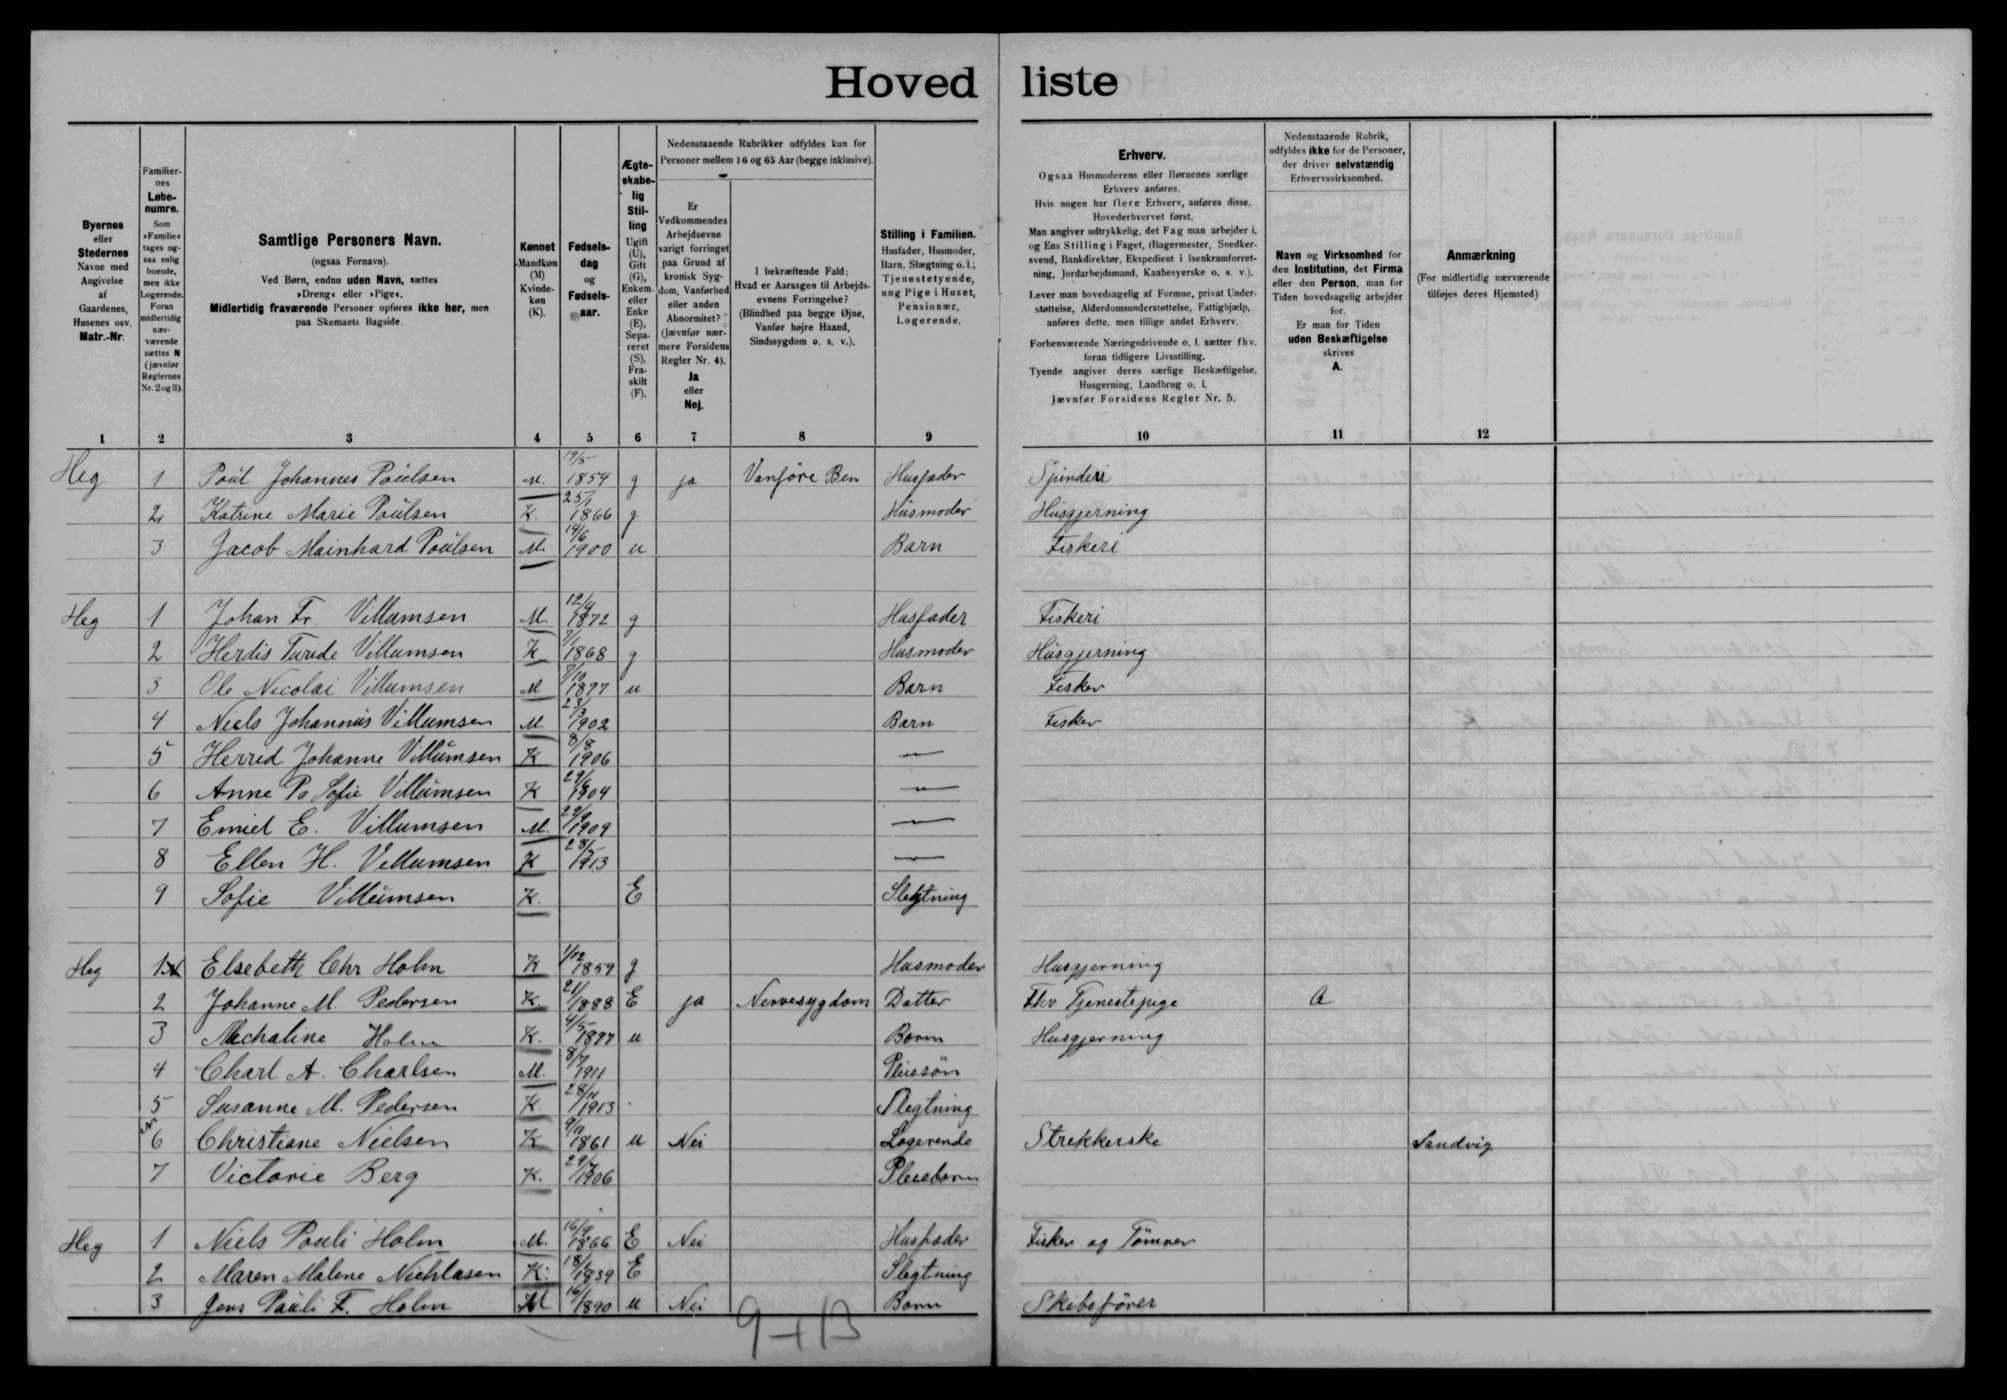 Hoved liste
Byernes
eller
Stedernes
Navne med
Angivelse
af
Gaardenes,
Husenes osv.
Matr.-Nr.
Familier-
nes
Løbe-
numre.
Som
»Familie«
tages og-
saa enlig
boende,
men ikke
Logerende.
Foran
midlertidig
nær-
værende
sættes N
(jævnfør
Reglernes
Nr. 2 og 3).
Samtlige Personers Navn.
(ogsaa Fornavn).
Ved Børn, endnu uden Navn, sættes
»Dreng« eller »Pige«.
Midlertidig fraværende Personer opføres ikke her, men
paa Skemaets Bagside.
Kønnet
Mandkøn
(M)
Kvinde-
køn
(K).
Fødsels-
dag
og
Fødsels-
aar.
Ægte-
skabe-
lig
Stil-
ling
Ugift
(U),
Gift
(G),
Enkem.
eller
Enke
(E),
Sepa-
reret
(S),
Fra-
skilt
(F).
Nedenstaaende Rubrikker udfyldes kun for
Personer mellem 16 og 65 Aar (begge inklusive).
Er
Vedkommendes
Arbejdsevne
varigt forringet
paa Grund af
kronisk Syg-
dom, Vanførhed
eller anden
Abnormitet?
(Jævnfør nær-
mere Forsidens
Regler Nr. 4).
Ja
eller
Nej.
I bekræftende Fald:
Hvad er Aarsagen til Arbejds-
evnens Forringelse?
(Blindhed paa begge Øjne,
Vanfør højre Haand,
Sindssygdom o. s. v.).
Stilling i Familien.
Husfader, Husmoder,
Barn, Slægtning o. l.;
Tjenestetyende,
ung Pige i Huset,
Pensionær,
Logerende.
Erhverv.
Ogsaa Husmoderens eller Børnenes særlige
Erhverv anføres.
Hvis nogen har flere Erhverv, anføres disse,
Hovederhvervet først.
Man angiver udtrykkelig, det Fag man arbejder i,
og Ens Stilling i Faget, (Bagermester, Snedker-
svend, Bankdirektør, Ekspedient i Isenkramforret-
ning, Jordarbejdsmand, Kaabesyerske o. s. v.).
Lever man hovedsagelig af Formue, privat Under-
støttelse, Alderdomsunderstøttelse, Fattighjælp,
anføres dette, men tillige andet Erhverv.
Forhenværende Næringsdrivende o. l. sætter fhv.
foran tidligere Livsstilling.
Tyende angiver deres særlige Beskæftigelse,
Husgerning, Landbrug o. l.
Jævnfør Forsidens Regler Nr. 5.
Nedenstaaende Rubrik,
udfyldes ikke for de Personer,
der driver selvstændig
Erhvervsvirksomhed.
Navn og Virksomhed for
den Institution, det Firma
eller den Person, man for
Tiden hovedsagelig arbejder
for.
Er man for Tiden
uden Beskæftigelse
skrives
A.
Anmærkning
(For midlertidig nærværende
tilføjes deres Hjemsted)
1 2 3 4 5 6 7 8 9 10 11 12
Heg 1 Poul Johannes Poulsen M. 19/5 1854 g ja Vanföre Ben Husfader Spinderi
2 Katrine Marie Poulsen K. 25/1 1866 g Husmoder Husgjerning
3 Jacob Mainhard Poulsen M. 14/6 1900 u Barn Fiskeri
Heg 1 Johan Fr. Villumsen M. 12/9 1872 g Husfader Fiskeri
2 Herdis Turide Villumsen K 7/1 1868 g Husmoder Husgjerning
3 Ole Nicolai Villumsen M 7/10 1897 u Barn Fisker
4 Niels Johannus Villumsen M 23/3 1902 Barn Fisker
5 Herrid Johanne Villumsen K 8/8 1906 —
6 Anne P. Sofie Villumsen K 1904 —
7 Emiel E. Villumsen M. 1909 —
8 Ellen H. Villumsen K 1913 —
9 Sofie Villumsen K. E Slegtning
Heg 1 Elsebeth Chr Holm K 1/12 1859 g Husmoder Husgjerning
2 Johanne M. Pedersen K. 21/1 1888 E ja Nervesygdom Datter Fhv Tjenestepige A
3 Michaline Holm K. 4/5 1897 u Barn Husgjerning
4 Charl A. Charlsen M. 8/7 1911 Pleiesön
5 Susanne M. Pedersen K. 28/11 1913 Slegtning
6 Christiane Nielsen K 9/11 1861 u Nei Logerende Strekkerske Sandvig
7 Victorie Berg K. 1906 Pleiebarn
Heg 1 Niels Pouli Holm M. 16/9 1866 E Nei Husfader Fisker og Tömrer
2 Maren Malene Nichlasen K. 18/1 1839 E Slegtning
3 Jens Pauli F. Holm M 1890 u Nei Barn Skibsförer
9+13